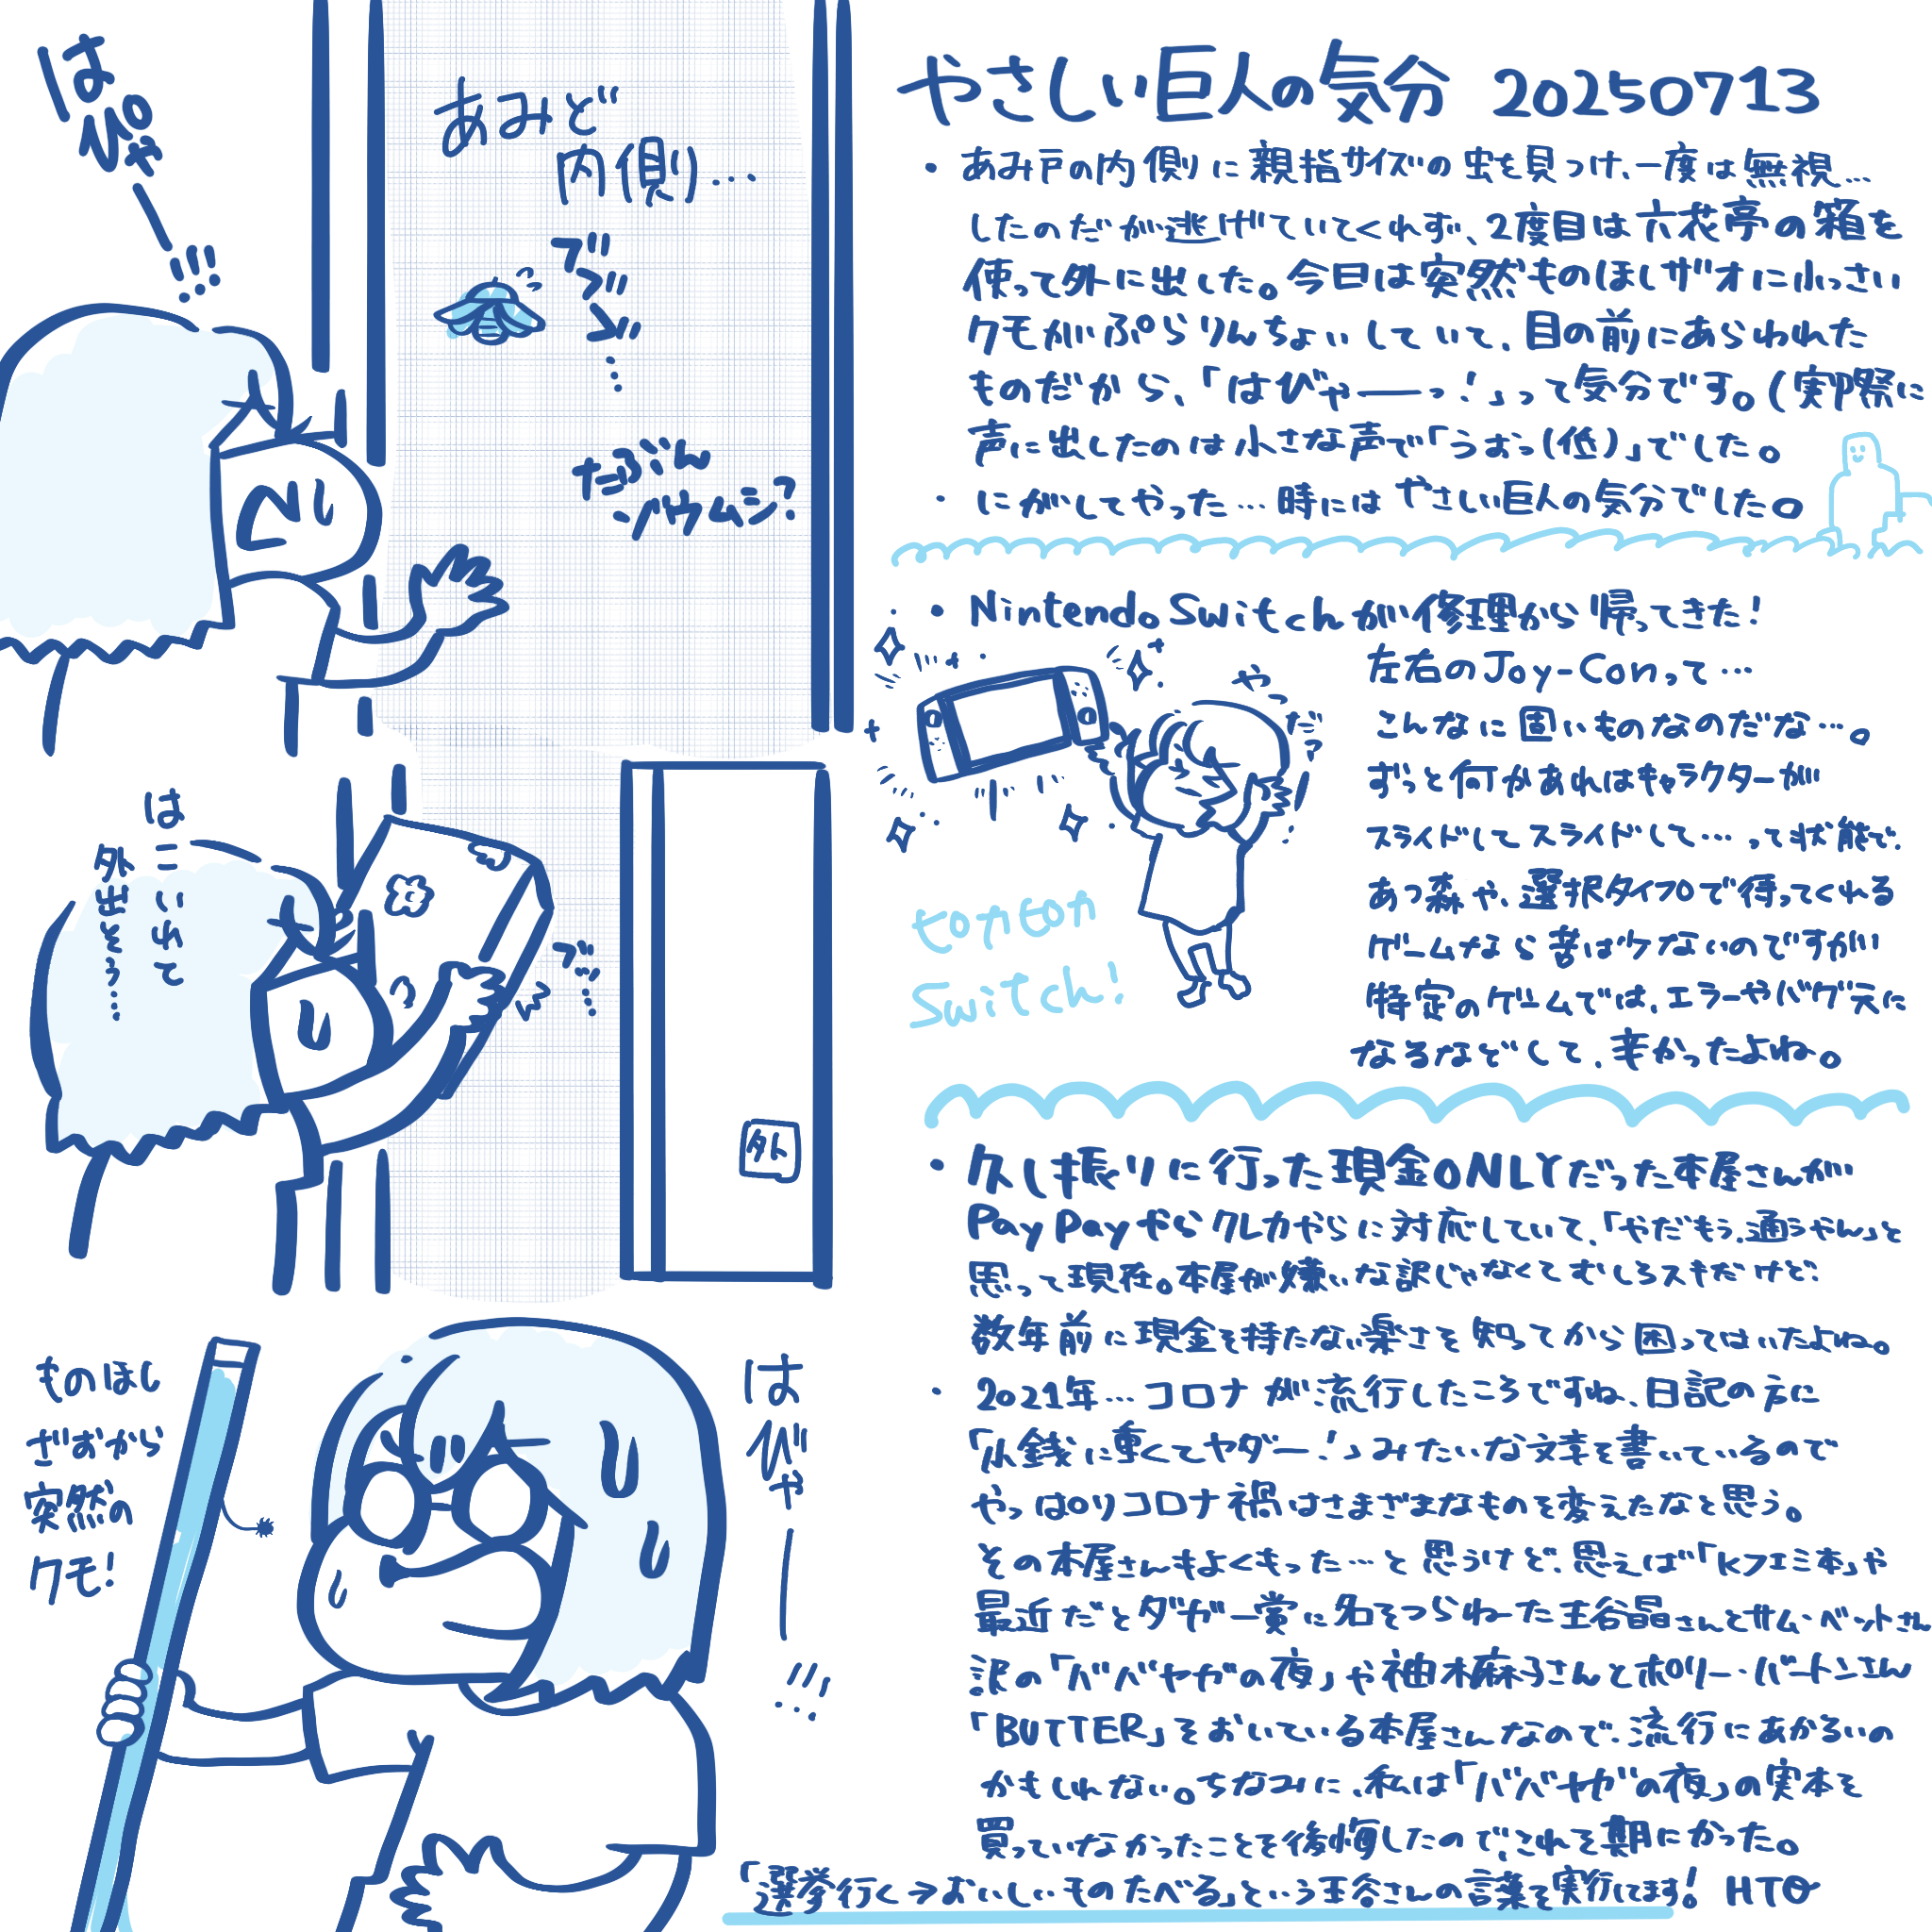 はぴゃー!!!
あみど
内側り…
ブブブ…
たぶん
ゾウムシ?
はこにいれて
外出そう…
ブッ…
外
ものほし
ざおから
突然の
クモ!
はびゃー!!!
やさしい巨人の気分 20250713
・あみ戸の内側りに親指サイズの虫を見つけ、一度は無視…
したのだが逃げていてくれず、2度目は六花亭の箱を
使って外に出した。今日は突然ものほしザオに小っさい
クモがぷらりんちょいしていて、目の前にあらわれた
ものだから、「はびゃーーっ!」って気分です。(実際に
声に出したのは小さな声で「うおっ(低)」でした。
・にがしてやった…時にはやさしい巨人の気分でした。
・Nintendo Switchが修理から帰ってきた!
左右のJoy-Conって…
こんなに固いものなのだな…。
ずっと何かあればキャラクターが
スライドしてスライドして…って状態で、
あつ森や、選択タイプで待ってくれる
ゲームなら苦はケないのですが
特定のゲームでは、エラーやバグ元に
なるなどして、辛かったよね。
やっだ?
tonton
Switch!
・久し振りに行った現金ONLYだった本屋さんが
PayPayやらクレカやらに対応していて、「やだもう、通うやん」と
思って現在。本屋が嫌いな訳じゃなくてむしろスキだけど、
数年前に現金を持たない楽さを知ってから困ってはいたよね。
・2021年…コロナが流行したころですね、日記の方に
「小銭に重くてヤダー!」みたいな文章を書いているので
やっぱりコロナ禍はさまざまなものを変えたなと思う。
その本屋さんもよくもった…と思うけど、思えば「Kフェミ本」や
最近だとダガー賞に名をつらねーた王谷晶さんとサム・ベットさん
訳の「ババヤガの夜」や柚木麻子さんとポリー・バートンさん
「BUTTER」をおいている本屋さんなので、流行にあかるいの
かもしれない。ちなみに、私は「ババヤガの夜」の実本を
買っていなかったことを後悔したので、これを期にかった。
「選挙行く→おいしいものたべる」という王谷さんの言葉を実行してます! HTO